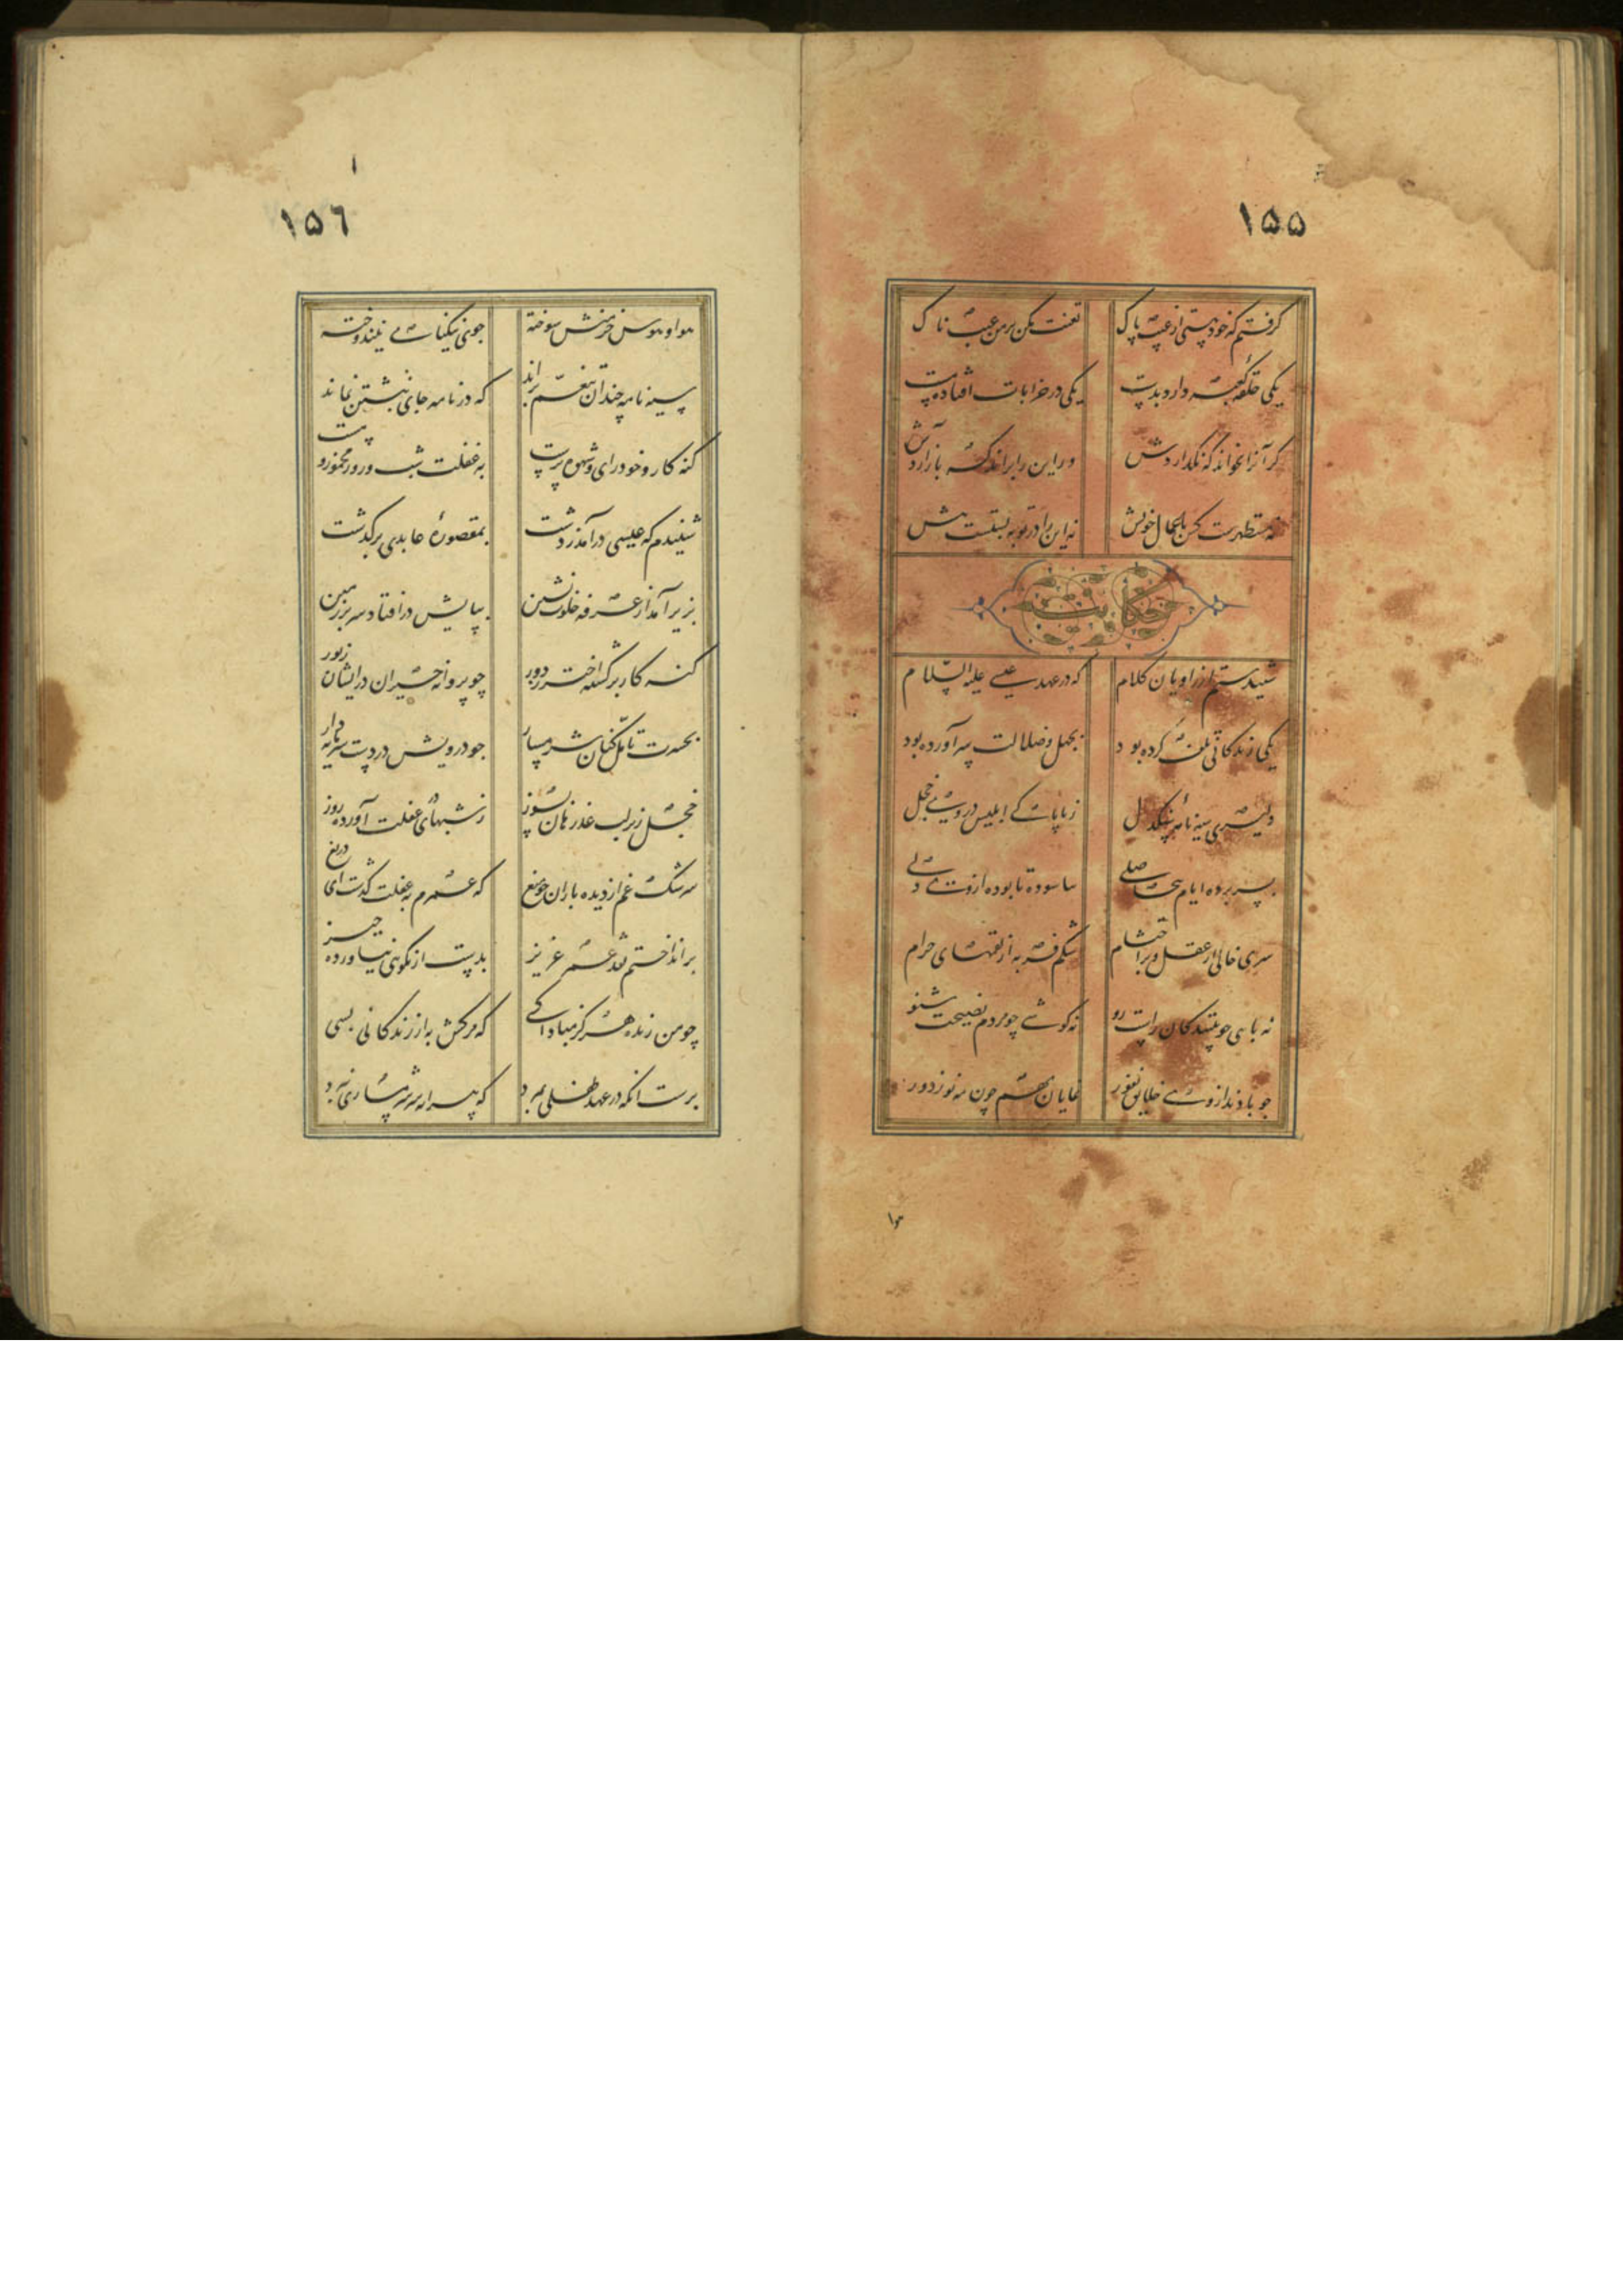 ۱۵۵
گرفتم که خود هستی از عیب پاک تعنت مکن بر من عیب ناک
یکی حلقه کعبه دارد بدست یکی در خرابات افتاده مست
گر آنرا بخواند که نگذاردش ور این را براند که باز آردش
نه مستظهرست آن باعمال خویش نه این را در توبه بستست پیش
حکایت
شنیدستم از راویان کلام که در عهد عیسی علیه السلام
یکی زندگانی تلف کرده بود بجهل و ضلالت سر آورده بود
دلیری سیه نامه سنگدل ز ناپاکی ابلیس در وی خجل
بسر برده ایام بیحاصلی نیاسوده تا بوده از وی دلی
سری خالی از عقل و پر احتشام شکم فربه از لقمهای حرام
نه پایی چو بینندگان راست رو نه گوشی چو مردم نصیحت شنو
چو سال بد از وی خلایق نفور نمایان بهم چون مه نو ز دور
۱۵۶
هوا و هوس خرمنش سوخته جوی نیکنامی نیندوخته
سیه نامه چندان تنعم براند که در نامه جای نبشتن نماند
گنه کار و خودرای و شهوت پرست به غفلت شب و روز مخمور و مست
شنیدم که عیسی در آمد ز دشت بمقصوره عابدی برگذشت
بزیر آمد از غرفه خلوت نشین بپایش در افتاد سر بر زمین
گنه کار برگشته اختر ز دور چو پروانه حیران در ایشان ز نور
بحسرت تامل کنان شرمسار چو درویش در دست سرمایه دار
خجل زیر لب عذر خواهان بسوز ز شبهای در غفلت آورده روز
سرشک غم از دیده باران چو میغ که عمرم به غفلت گذشت ای دریغ
برانداختم نقد عمر عزیز بدست از نکویی نیاورده چیز
چو من زنده هرگز مبادا کسی که مرگش به از زندگانی بسی
برست آنکه در عهد طفلی بمرد که پیرانه سر شرمساری نبرد